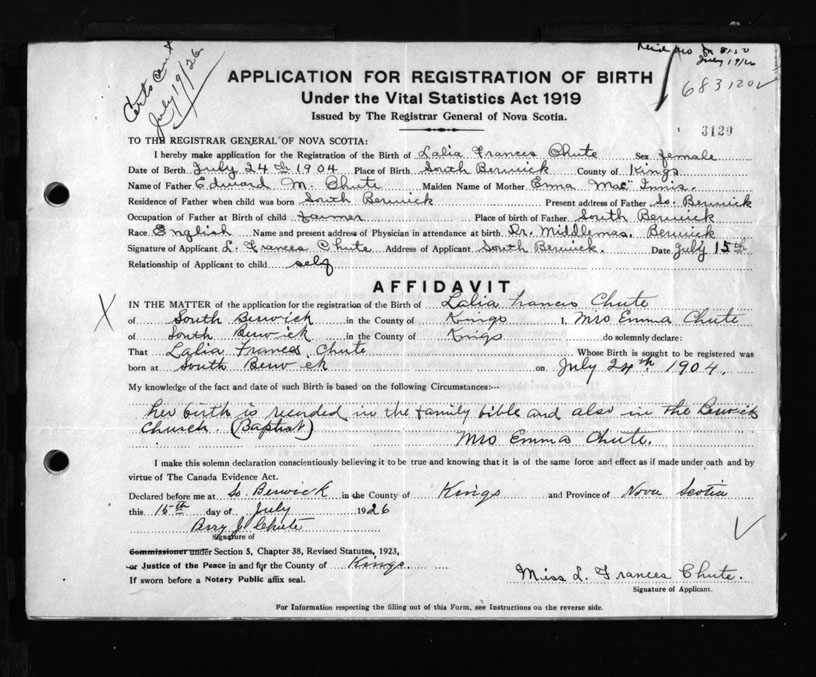 Certs Cent
July 19/26
July 19/26
APPLICATION FOR REGISTRATION OF BIRTH
683120
Under the Vital Statistics Act 1919
Issued by The Registrar General of Nova Scotia.
3120
TO THE REGISTRAR GENERAL OF NOVA SCOTIA:
I hereby make application for the Registration of the Birth of Lalia Frances Chute Sex female
Date of Birth July 24th 1904 Place of Birth South Berwick County of Kings
Name of Father Edward M. Chute Maiden Name of Mother Emma Mac Innis.
Residence of Father when child was born South Berwick Present address of Father So. Berwick
Occupation of Father at Birth of child farmer Place of birth of Father South Berwick
Race English Name and present address of Physician in attendance at birth Dr. Middlemas. Berwick
Signature of Applicant L. Frances Chute Address of Applicant South Berwick. Date July 15th
Relationship of Applicant to child self
AFFIDAVIT
IN THE MATTER of the application for the registration of the Birth of Lalia Frances Chute
of South Berwick in the County of Kings I, Mrs Emma Chute
of South Berwick in the County of Kings do solemnly declare:
That Lalia Frances Chute Whose Birth is sought to be registered was
born at South Berwick on July 24th 1904.
My knowledge of the fact and date of such Birth is based on the following Circumstances:—
her birth is recorded in the family bible and also in the Berwick
Church. (Baptist)
Mrs Emma Chute.
I make this solemn declaration conscientiously believing it to be true and knowing that it is of the same force and effect as if made under oath and by
virtue of The Canada Evidence Act.
Declared before me at So. Berwick in the County of Kings and Province of Nova Scotia
this 15th day of July 1926
Perry J. Chute
Signature of
Commissioner under Section 5, Chapter 38, Revised Statutes, 1923,
or Justice of the Peace in and for the County of Kings.
If sworn before a Notary Public affix seal.
Miss L. Frances Chute.
Signature of Applicant.
For Information respecting the filling out of this Form, see Instructions on the reverse side.